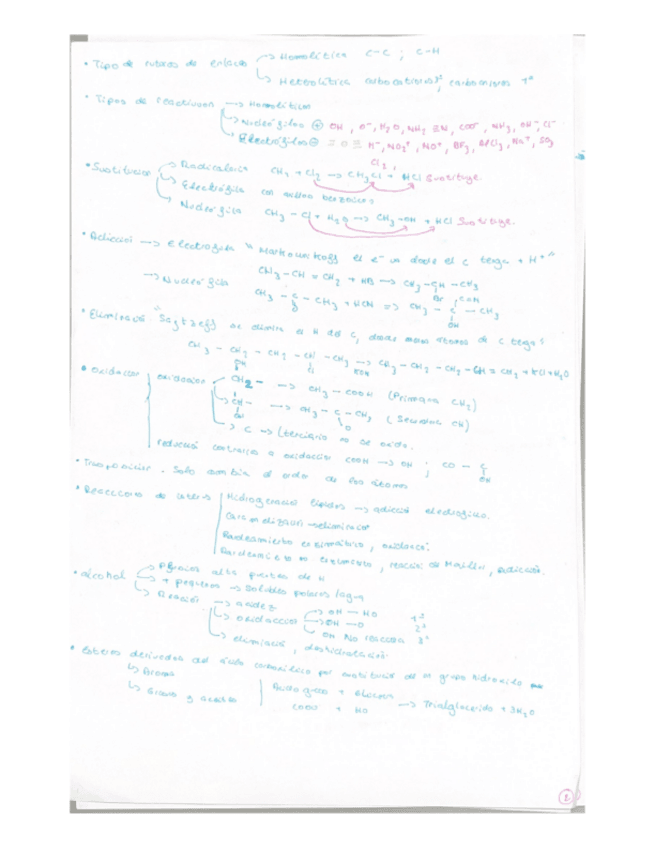 • Tipo de rutura de enlace → Homolítica C-C ; C-H
→ Heterolítica carbocationes 3º, carboaniones 1º
• Tipos de reactivos → Homolíticos
→ Nucleófilos ⊕ OH, O⁻, H₂O, NH₂, ≡N, COO⁻, NH₃, OH⁻, Cl⁻
→ Electrófilos ⊖ = O ≡ H⁻, NO₂⁺, NO⁺, BF₃, AlCl₃, Na⁺, SO₃
Cl₂,
• Sustitución → Radicalaria CH₄ + Cl₂ → CH₃Cl + HCl Sustituye.
→ Electrófila con anillos bencénicos
→ Nucleófila CH₃ - Cl + H₂O → CH₃-OH + HCl Sustituye.
• Adición → Electrófila "Markownikoff el e⁻ va donde el C tenga + H⁺"
CH₃-CH = CH₂ + HB → CH₃-CH-CH₃
Br
→ Nucleófila CH₃ - C - CH₃ + HCN => CH₃ - C - CH₃
O C≡N OH
• Eliminación. "Saytzeff se elimina el H del C, donde menos átomos de C tenga"
CH₃ - CH₂ - CH₂ - CH - CH₃ → CH₃ - CH₂ - CH₂ - CH = CH₂ + KCl + H₂O
Cl KOH
• Oxidación | oxidación → CH₂ - → CH₃ - COOH (Primaria CH₂)
OH
→ CH - → CH₃ - C - CH₃ (Secundaria CH)
OH O
→ C → (terciario no se oxida.
reducción contraria a oxidación COOH → OH ; CO - C
OH
• Trasposición. Solo cambia el orden de los átomos
• Reacciones de | Hidrogenación lípidos → adición electrófila.
→ eliminación
Pardeamiento enzimático, oxidación.
Pardeamiento no enzimático, reacción de Maillard, adición.
• alcohol → alta puentes de H
→ + pequeños → solubles polares/agua
→ Reacción → acidez
→ oxidación → OH - HO 1º
→ OH - O 2º
OH No reacciona 3º
→ eliminación, deshidratación
• Esteres derivados del ácido carboxílico por sustitución de un grupo hidroxilo
→ Aroma
→ Grasas y aceites | Ácido graso + alcohol
COOH + HO → Trialglicerido + 3H₂O
2